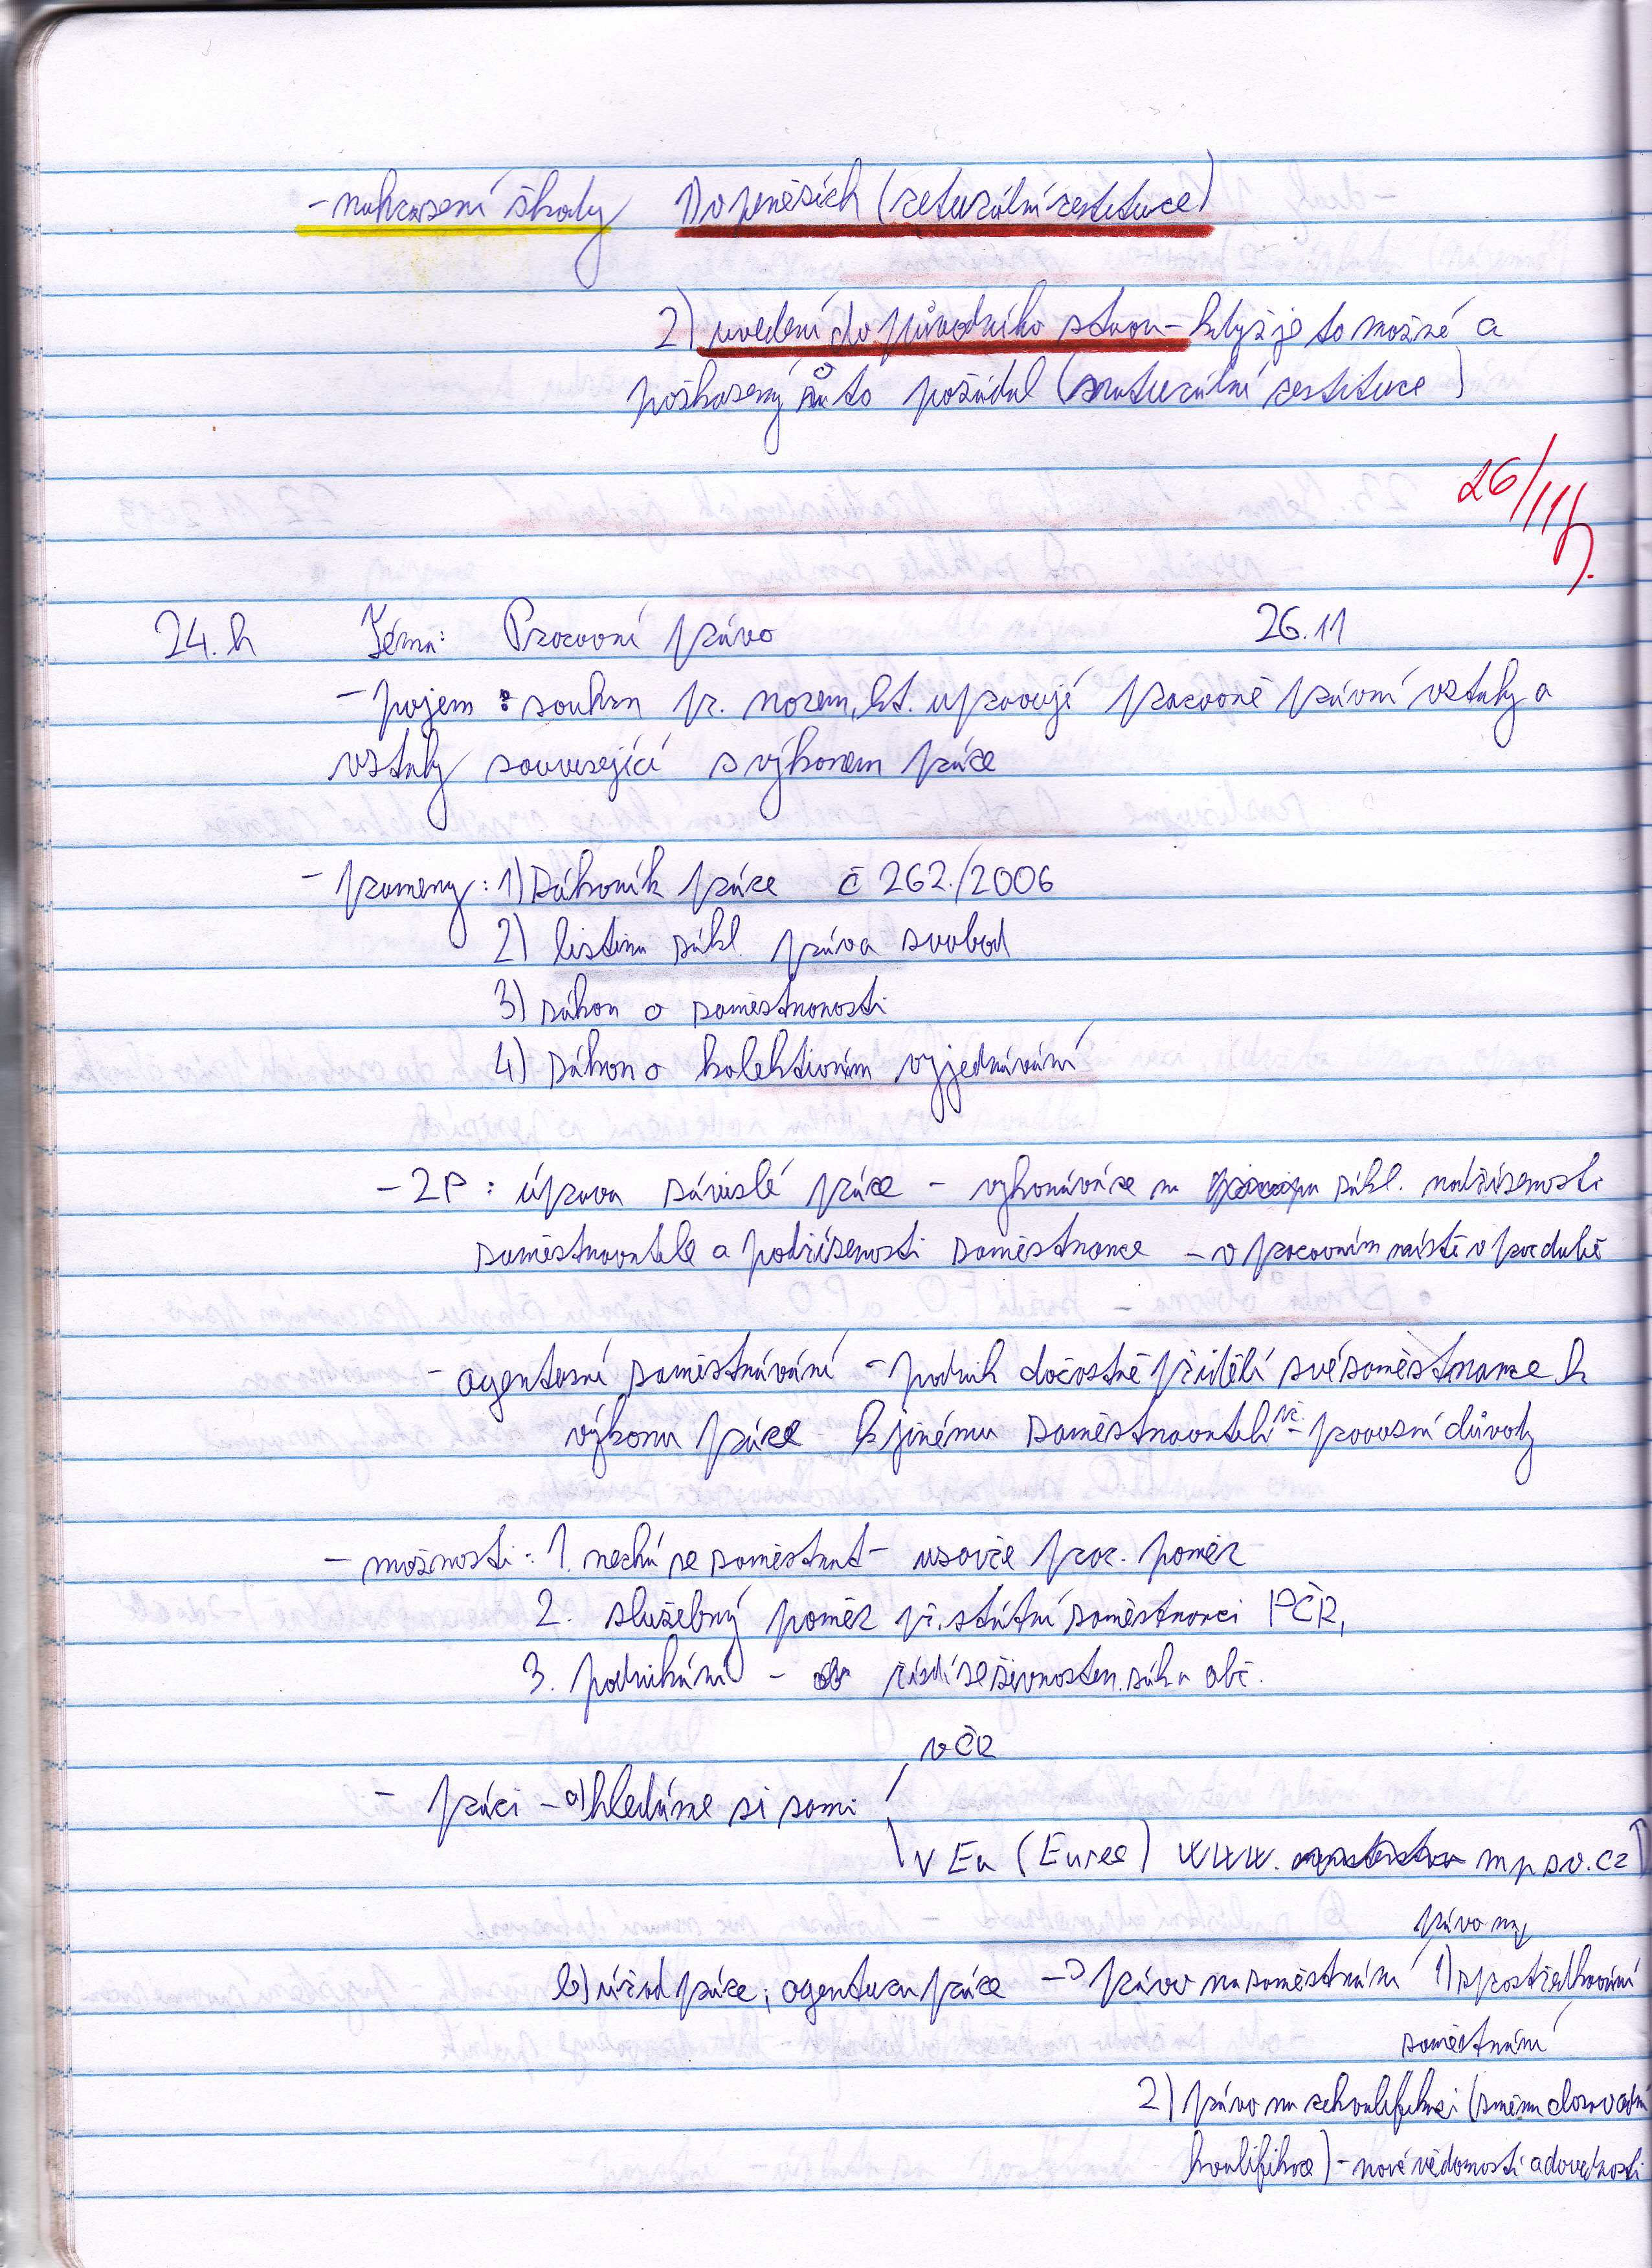 - nahrazení škody 1) v penězích (returální restituce)
2) uvedení do původního stavu - když je to možné a
poškozený o to požádal (naturální restituce)
26/11
24.h Téma: Pracovní právo 26.11
- pojem: souhrn pr. norem, kt. upravují pracovně právní vztahy a
vztahy související s výkonem práce
- prameny: 1) Zákoník práce č 262./2006
2) listina zákl. práv a svobod
3) zákon o zaměstnanosti
4) zákon o kolektivním vyjednávání
- ZP: úprava závislé práce - vykonává se na zákl. nadřízenosti
zaměstnavatele a podřízenosti zaměstnance - v pracovním místě v prac době
- agenturní zaměstnávání - podnik dočastně přidělí své zaměstnance k
výkonu práce k jinému zaměstnavateli př. - provozní důvody
- možnosti: 1. nechá se zaměstnat - uzavře prac. poměr
2. služebný poměr př. státní zaměstnanci PČR,
3. podnikání - řídí se živnosten. zák a obč.
v ČR
- práci - a) hledáme si sami
v Eu (Eures) www. mpsv.cz
právo na
b) úřad práce, agentura práce -> právo na zaměstnání 1) zprostředkování
zaměstnání
2) právo na rekvalifikaci (změnu dosavadní
kvalifikace) - nové vědomosti a dovednosti